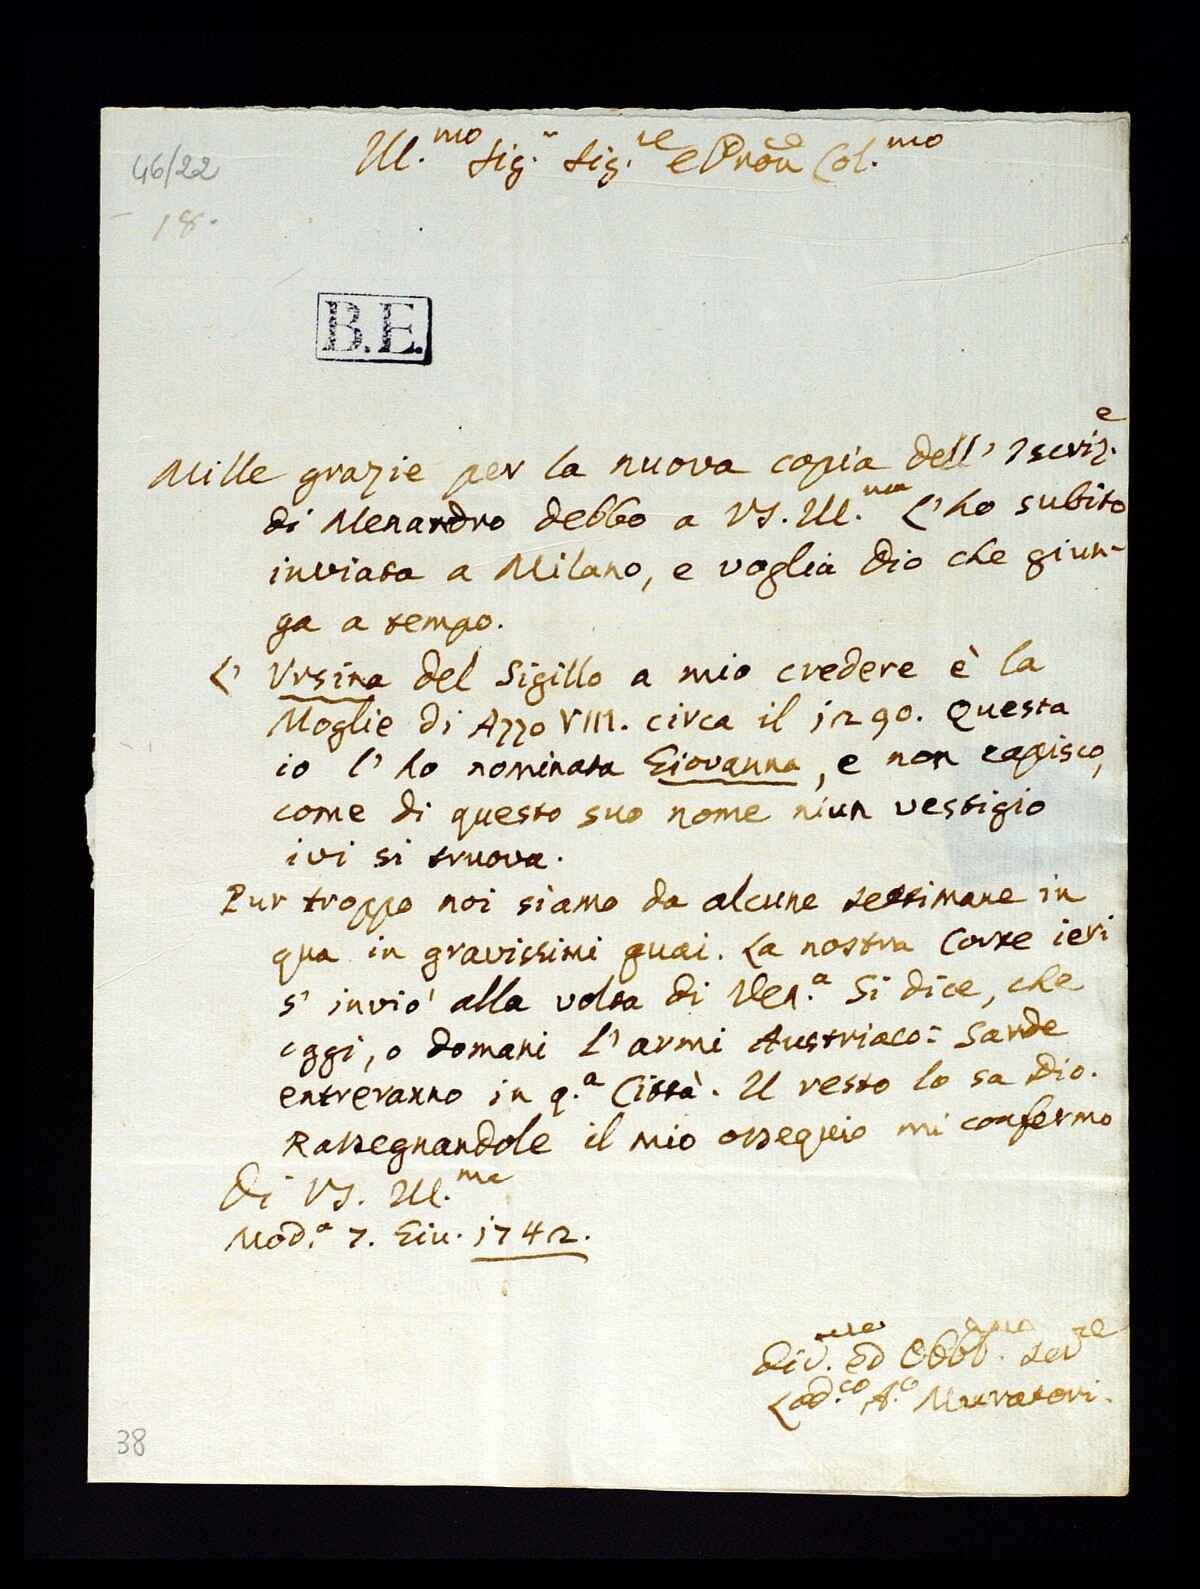 46/22
18.
Ill.mo Sig.r Sig.re e Pron Col.mo
B.E.
Mille grazie per la nuova copia dell' Iscriz.e
di Menandro debbo a VS. Ill.ma L'ho subito
inviata a Milano, e voglia Dio che giun-
ga a tempo.
L' Ursina del Sigillo a mio credere è la
Moglie di Azzo VIII. circa il 1290. Questa
io l' ho nominata Giovanna, e non capisco,
come di questo suo nome niun vestigio
ivi si truova.
Pur troppo noi siamo da alcune settimane in
qua in gravissimi guai. La nostra Corte ieri
s' inviò alla volta di Ven.a Si dice, che
oggi, o domani l' armi Austriaco= Sarde
entreranno in q.a Città. Il resto lo sa Dio.
Rassegnandole il mio ossequio mi confermo
di VS. Ill.ma
Mod.a 7. Giu. 1742.
Div.mo ed Obbl.mo Ser.re
Lod.co A.o Muratori.
38